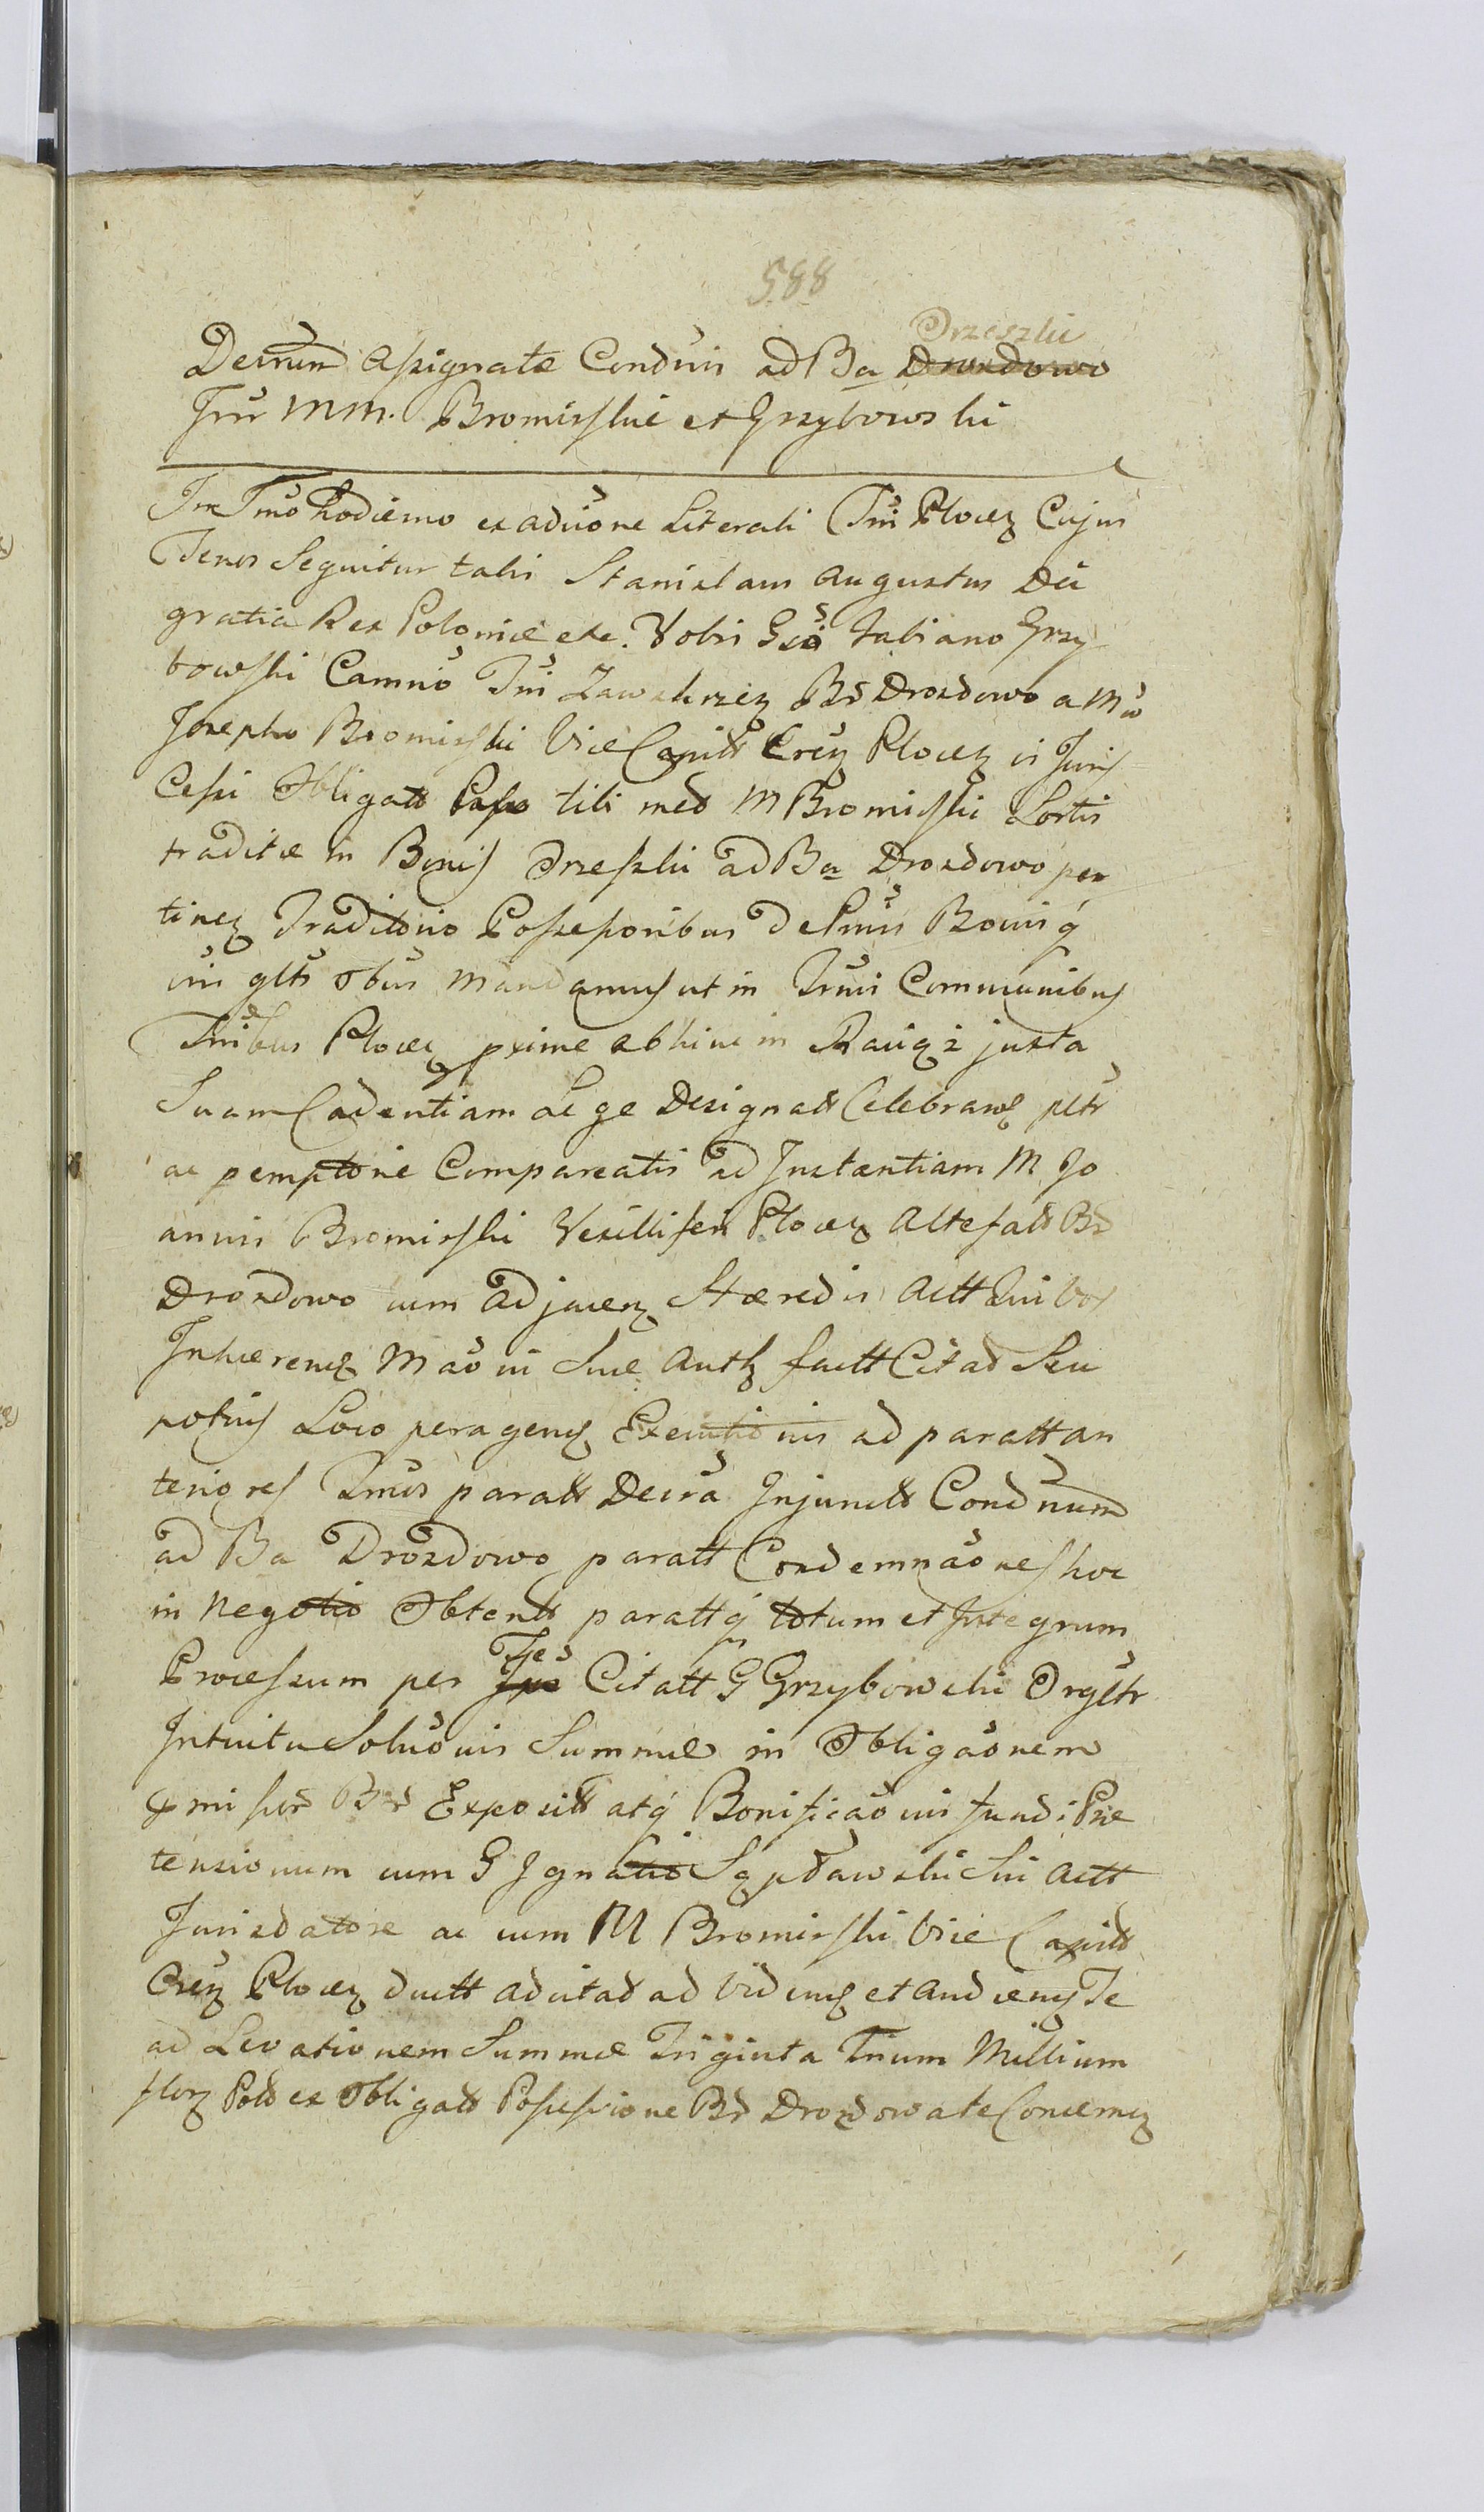 588
Orzeszki
Decrum Assignatæ Condnis ad Ba Drozdowo
Inr MM. Bromirskie et Grzybowski
In Tmo hodierno ex adcione Literali Tri Plocen Cujus
Tenor Sequitur talis Stanislaus Augustus Dei
gratia Rex Poloniæ etc. Vobis Fabiano Grzy
bowski Camrio Tri Zawskrzen Bd Drozdowo a Mco
Josepho Bromirski Vice Capitt Crez Plocen Juris
Cessi Obligatt Posso tibi med M Bromirski Sortis
traditæ in Bonis Orzeszki ad Ba Drozdowo per
tinen Traditorio Possessoribus de Psnis Bonisq
gltr obus Mandamus ut in Trnis Communibus
Tribus Plocen pxime abhinc in Raciąż juxta
Suam Cadentiam Lege Designatt Celebrans pltr
ac pemptorie Compareatis ad Instantiam M Jo
annis Bromirski Vexilliferi Plocen Altefatt Bd
Drozdowo cum Adjacen Hæredis Actt Qui Vos
Inhærens Maoni Suæ Auth factt Citatt Seu
potius Loco peragens Executionis ad paratt an
teriores Tmos paratt Decra Injunctt Condnum
ad Ba Drozdowo paratt Condemnaones hoc
in Negotio Obtentt parattq totum et Integrum
Processum per Te Citatt G Grzybowski Orgltr
Intuitu Soluonis Summæ in Obligaonem
Bd Exposittt atq Bonificaonis fundi Præ
tensionum cum G Ignatio Sui Actt
Jurisdatore ac cum M Bromirski Vice Capitt
Crez Plocen ductt adcitatt ad Videns et Audiens Te
ad Levationem Summæ Triginta Trium Millium
flor Pold ex Obligatt Possessione Bd Drozdow a te Concernen